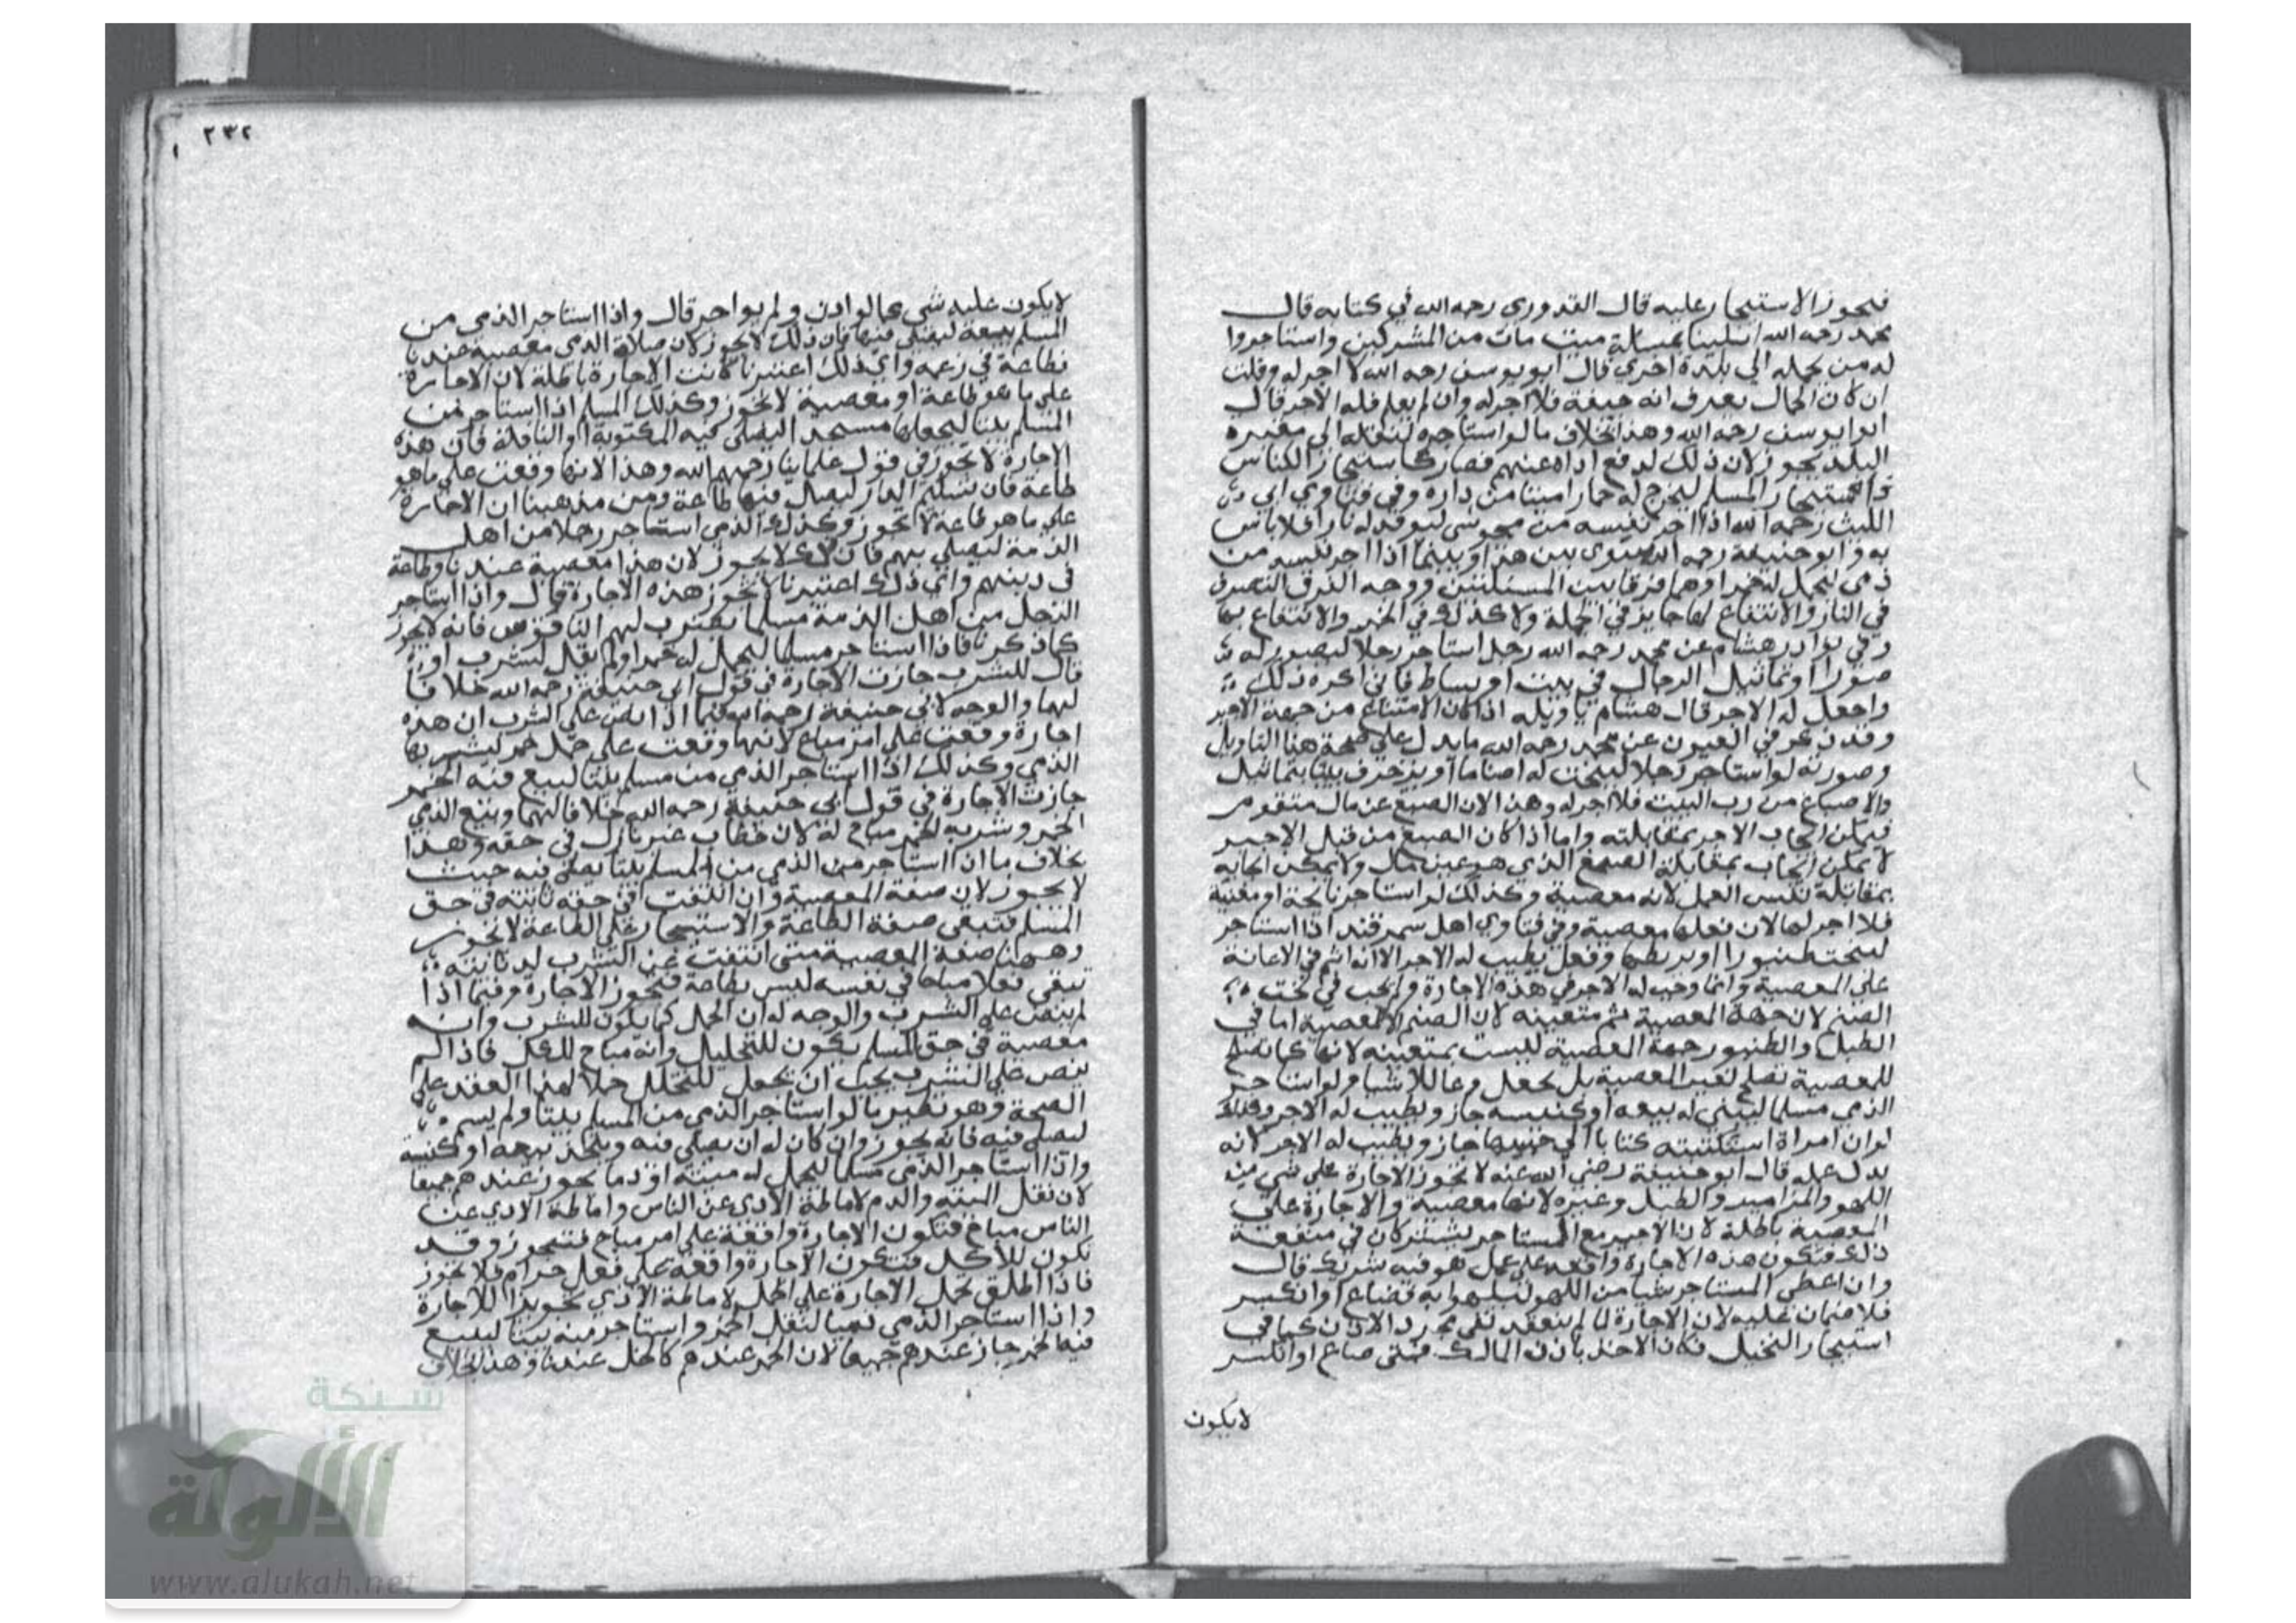 فيجوز الاستيجار عليه قال القدوري رحمه الله في كتابه قال
محمد رحمه الله ابتلينا بمسالة ميت مات من المشركين واستاجروا
له من يحمله الي بلدة اخري قال ابو يوسف رحمه الله لا اجر له وقلت
ان كان الحمال يعرف انه جيفة فلا اجر له وان لم يعلم فله الاجر قال
ابو يوسف رحمه الله وهذا بخلاف ما لو استاجره لينقله الي مقبرة
البلد يجوز لان ذلك لدفع اذاه عنهم فصار كاستيجار الكناس
المسلم ليخرج له حمارا ميتا من داره وفي فتاوي ابي
الليث رحمه الله اذا اجر نفسه من مجوسي ليوقد له نارا فلا باس
به وابو حنيفة رحمه الله سوى بين هذا وبينما اذا اجر نفسه من
ذمي ليحمل له خمرا وهما فرقا بين المسئلتين ووجه الفرق التصرف
في النار والانتفاع بها جايز في الجملة ولا كذلك في الخمر والانتفاع بها
وفي نوادر هشام عن محمد رحمه الله رجل استاجر رجلا ليصور له
صورا او تماثيل الرجال في بيت او بساط فاني اكره ذلك
واجعل له الاجر قال هشام تاويله اذا كان الاصباغ من جهة الاجير
وقد ذكر في العيون عن محمد رحمه الله ما يدل علي صحة هذا التاويل
وصورته لو استاجر رجلا لينحت له اصناما او يزخرف بيتا بتماثيل
والاصباغ من رب البيت فلا اجر له وهذا لان الصبغ عن مال متقوم
فيمكن ايجاب الاجر بمقابلته واما اذا كان الصبغ من قبل الاجير
لا يمكن ايجاب بمقابلة الصبغ الذي هو عين مال ولا يمكن ايجابه
بمقابلة نفس العمل لانه معصية وكذلك لو استاجر نايحة او مغنية
فلا اجر لها لان فعلها معصية وفي فتاوي اهل سمرقند اذا استاجر
لينحت طنبورا او بربطا وفعل يطيب له الاجر الا انه اثم في الاعانة
علي المعصية وانما وجب له الاجر في هذه الاجارة ولم يجب في نحت
الصنم لان جهة المعصية ثم متعينه لان الصنم للمعصية اما في
الطبل والطنبور جهة المعصية ليست بمتعينه لانها كما تصلح
للمعصية تصلح لغير المعصية بل يجعل وعا للاشيا ولو استاجر
الذمي مسلما ليبني له بيعه او كنيسه جاز ويطيب له الاجر وكذلك
لو ان امراة استكتبته كتابا الي حبيبها جاز ويطيب له الاجر لانه
بدل عمله قال ابو حنيفة رضي الله عنه لا تجوز الاجارة على شي من
اللهو والمزامير والطبل وغيره لانها معصية والاجارة على
المعصية باطلة لان الاجير مع المستاجر يشتركان في منفعة
ذلك فتكون هذه الاجارة واقعه علي عمل هو فيه شريك قال
وان اعطى المستاجر شيا من اللهو ليلهو به فضاع او انكسر
فلا ضمان عليه لان الاجارة لما لم ينعقد بقي مجرد الاذن كما في
استيجار النخيل فكان الاخذ باذن المالك فمتى ضاع او انكسر
لا يكون
٢٣٢
لا يكون عليه شي كما لو اذن ولم يواجر قال واذا استاجر الذمي من
المسلم بيعة ليصلى فيها فان ذلك لا يجوز لان صلاة الذمي معصية عندنا
وطاعة في زعمه واي ذلك اعتبرنا كانت الاجارة باطلة لان الاجارة
علي ما هو طاعة او معصية لا تجوز وكذلك المسلم اذا استاجر من
المسلم بيتا ليجعلها مسجدا ليصلى فيه المكتوبة او النافلة فان هذه
الاجارة لا تجوز في قول علماينا رحمهم الله وهذا لانها وقعت علي ما هو
طاعة فان تسليم الدار ليصلى فيها طاعة ومن مذهبنا ان الاجارة
علي ما هو طاعة لا تجوز وكذلك الذمي استاجر رجلا من اهل
الذمة ليصلي بهم فان ذلك لا يجوز لان هذا معصية عندنا وطاعة
في دينهم واي ذلك اعتبرنا لا تجوز هذه الاجارة قال واذا استاجر
الرجل من اهل الذمة مسلما يضرب لهم الناقوس فانه لا يجوز
كما ذكرنا فاذا استاجر مسلما ليحمل له خمرا ولم يقل ليشرب او
قال للشرب جازت الاجارة في قول ابي حنيفة رحمه الله خلافا
لهما والوجه لابي حنيفة رحمه الله فيما اذا نص على الشرب ان هذه
اجارة وقعت علي امر مباح لانها وقعت علي حمل خمر ليشربها
الذمي وكذلك اذا استاجر الذمي من مسلم بيتا ليبيع فيه الخمر
جازت الاجارة في قول ابي حنيفة رحمه الله خلافا لهما وبيع الذي
الخمر وشربه الخمر مباح له لان خطاب غير نازل في حقه وهذا
بخلاف ما اذا استاجر من الذمي من المسلم بيتا يصلي فيه حيث
لا يجوز لان صفة المعصية وان انتفت في حقه ثابتة في حق
المسلم فتبقى صفة الطاعة والاستيجار على الطاعة لا تجوز
وههنا صفة المعصية متى انتفت عن الشرب لديانته
تبقى فعلا مباحا في نفسه ليس بطاعة فتجوز الاجارة وفيما اذا
لم ينص علي الشرب والوجه له ان الحمل كما يكون للشرب وانه
معصية في حق المسلم يكون للتخليل وانه مباح للكل فاذا لم
ينص علي الشرب يجب ان يجعل للتخلل حملا لهذا العقد علي
الصحة وهو نظير ما لو استاجر الذمي من المسلم بيتا ولم يسم
ليصلى فيه فانه يجوز وان كان له ان يصلي فيه ويتخذ بيعه او كنيسة
واذا استاجر الذمي مسلما ليحمل له ميتة او دما يجوز عندهم جميعا
لان نقل الميته والدم لاماطة الاذي عن الناس واماطة الاذي عن
الناس مباح فتكون الاجارة واقعة علي امر مباح فتجوز وقد
تكون للاكل فتكون الاجارة واقعة علي فعل حرام فلا يجوز
فاذا اطلق تحمل الاجارة علي الحمل لاماطة الاذي تجويزا للاجارة
واذا استاجر الذمي ذميا لنقل الخمر واستاجر منه بيتا ليبيع
فيه الخمر جاز عندهم جميعا لان الخمر عندهم كالخل عندنا وهذا بخلاف
شبكة
الألوكة
www.alukah.net